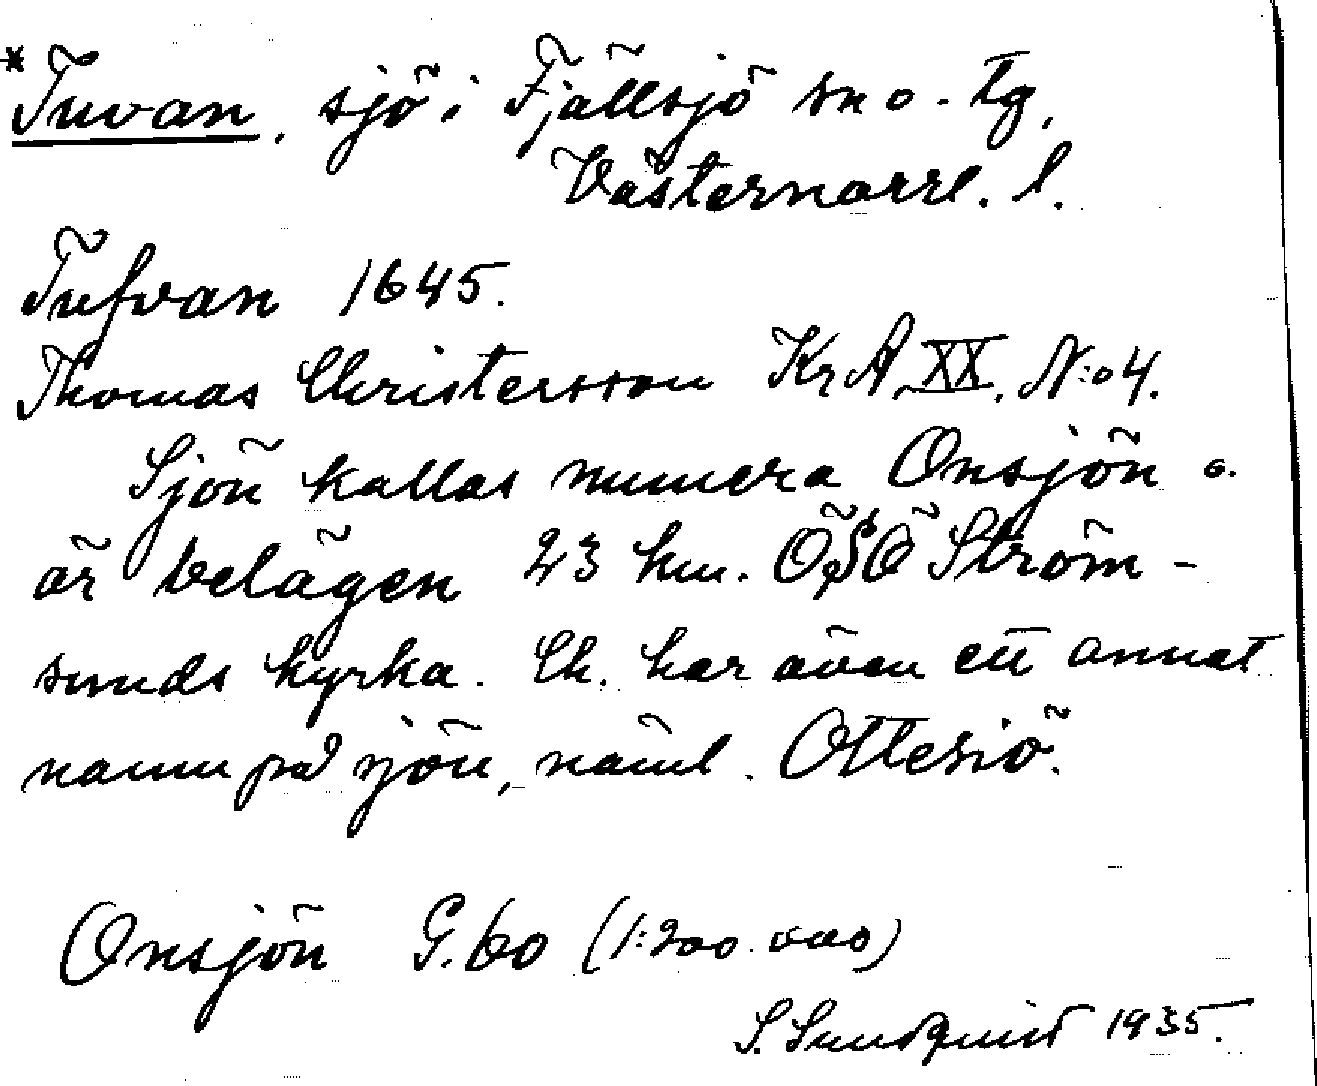 *Tuvan, sjö i Fjällsjö sn o. tg,
Västernorrl. l.
Tufvan 1645.
Thomas Christersson KrA, XX, N:o 4.
Sjön kallas numera Onsjön o.
är belägen 23 km. ÖSÖ Ström-
sunds kyrka. Ch. har även ett annat
namn på sjön, näml. Ottesiö.
Onsjön G. 60 (1:200.000)
S. Sundquist 1935.